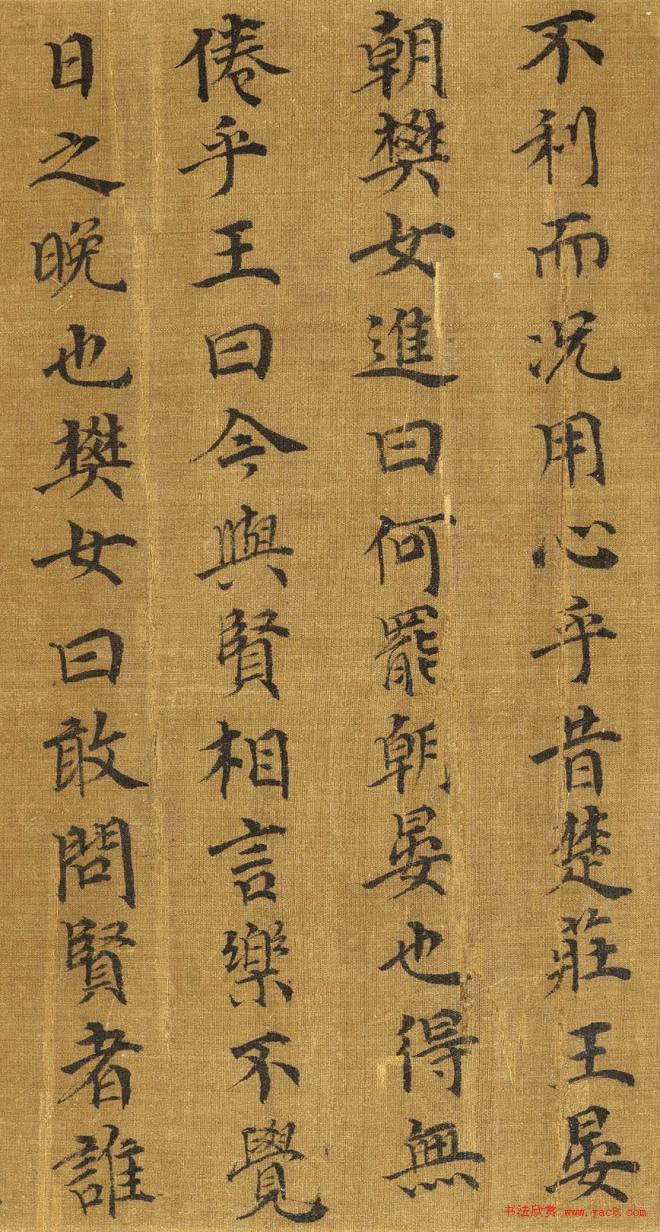 不利而况用心乎昔楚莊王晏
朝樊女進曰何罷朝晏也得無
倦乎王曰今與賢相言樂不覺
日之晚也樊女曰敢問賢者誰
书法欣赏 www.yac8.com